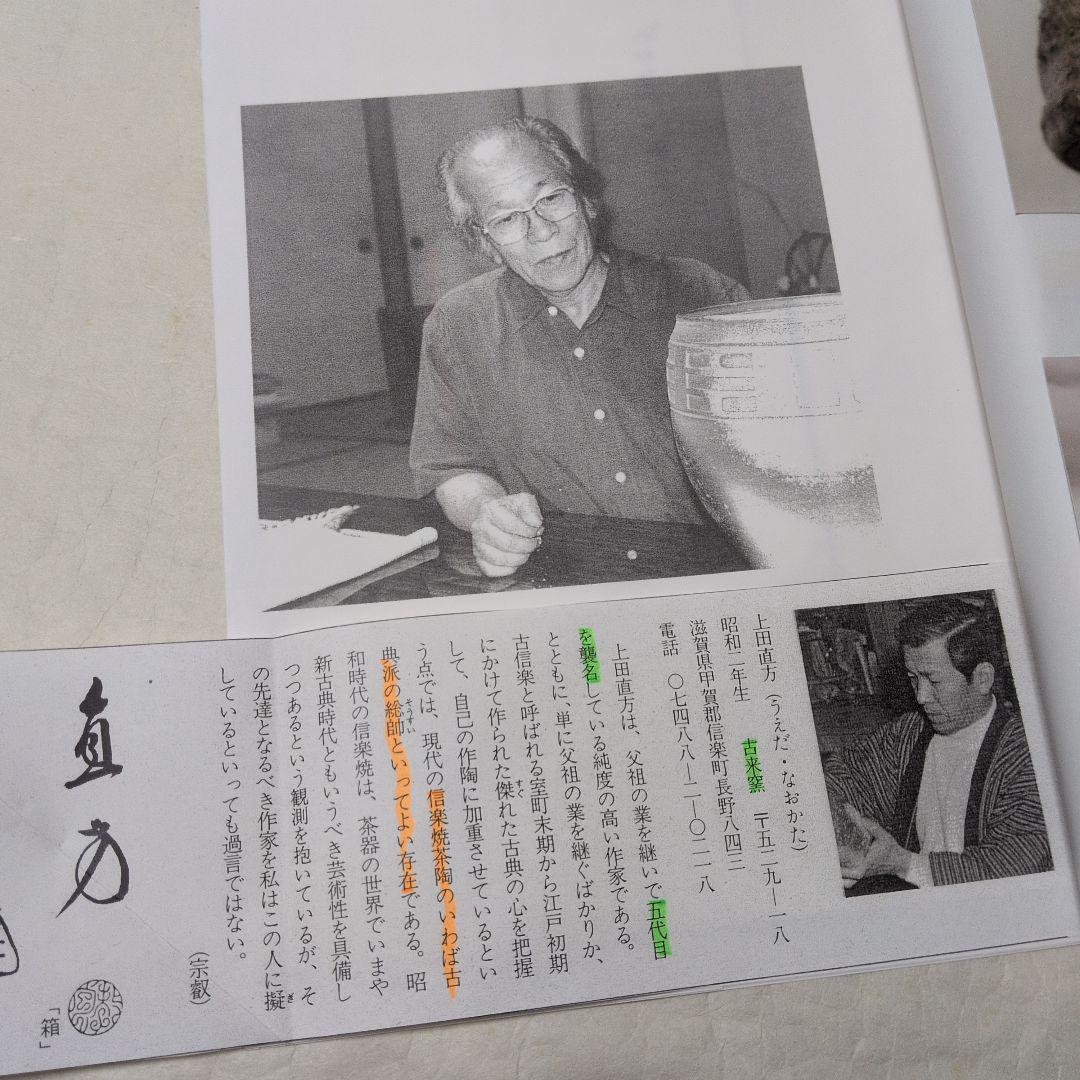 上田直方(うえだ・なおかた)
昭和二年生 古来窯 〒五二九—一八
滋賀県甲賀郡信楽町長野八四三
電話 〇七四八八—二—〇二一八
上田直方は、父祖の業を継いで五代目
を襲名している純度の高い作家である。
とともに、単に父祖の業を継ぐばかりか、
古信楽と呼ばれる室町末期から江戸初期
にかけて作られた傑れた古典の心を把握
して、自己の作陶に加重させているとい
う点では、現代の信楽焼茶陶のいわば古
典派の総帥といってよい存在である。昭
和時代の信楽焼は、茶器の世界でいまや
新古典時代ともいうべき芸術性を具備し
つつあるという観測を抱いているが、そ
の先達となるべき作家を私はこの人に擬
しているといっても過言ではない。
(宗叡)
直方
「箱」